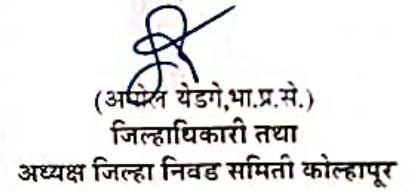 (अमोल येडगे,भा.प्र.से.)
जिल्हाधिकारी तथा
अध्यक्ष जिल्हा निवड समिती कोल्हापूर